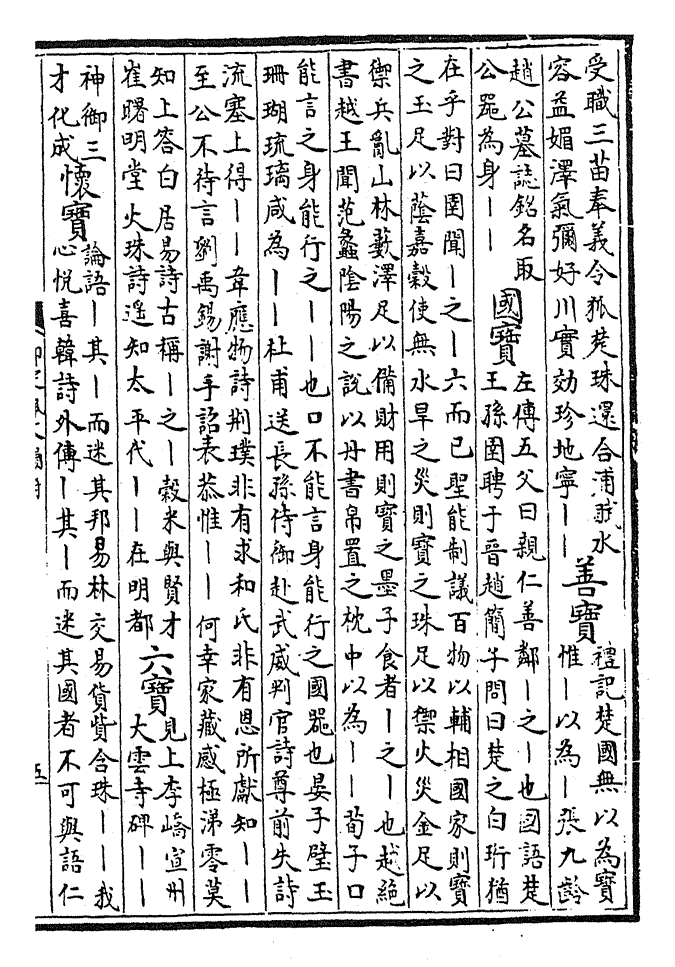 受職三苗奉義令狐楚珠還合浦戢水
容益媚澤氣彌好川實効珍地寧丨丨
善寶
禮記楚國無以為寶
惟丨以為丨張九齡
趙公墓誌銘名取
公器為身丨丨
國寶
左傳五父曰親仁善鄰丨之丨也國語楚
王孫圉聘于晉趙簡子問曰楚之白珩猶
在乎對曰圉聞丨之丨六而已聖能制議百物以輔相國家則寶
之玉足以蔭嘉穀使無水旱之災則寶之珠足以禦火災金足以
禦兵亂山林藪澤足以備財用則寶之墨子食者丨之丨也越絕
書越王聞范蠡陰陽之說以丹書帛置之枕中以為丨丨荀子口
能言之身能行之丨丨也口不能言身能行之國器也晏子璧玉
珊瑚琉璃咸為丨丨杜甫送長孫侍御赴武威判官詩尊前失詩
流塞上得丨丨韋應物詩荆璞非有求和氏非有恩所獻知丨丨
至公不待言劉禹錫謝手詔表恭惟丨丨何幸家藏感極涕零莫
知上答白居易詩古稱丨之丨穀米與賢才
崔曙明堂火珠詩遥知太平代丨丨在明都
六寶
見上李嶠宣州
大雲寺碑丨丨
神御三
才化成
懷寶
論語丨其丨而迷其邦易林交易貨貲含珠丨丨我
心悦喜韓詩外傳丨其丨而迷其國者不可與語仁